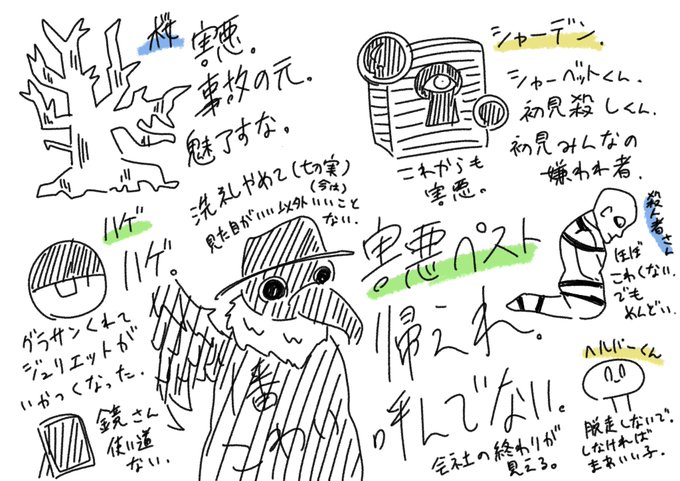 桜
害悪。
事故の元。
魅了すな。
洗礼やめて(七の実)
(今は)
見た目がいい以外いいこと
ない。
シャーデン。
シャーベットくん。
初見殺しくん。
初見みんなの
嫌われ者。
これからも
害悪。
殺人者さん
ほぼ
こわくない。
でも
めんどい。
ハゲ
ハゲ。
グラサンくれて
ジュリエットが
いかつくなった。
鏡さん
使い道
ない。
害悪ペスト
帰えれ。
呼んでない。
会社の終わりが
見える。
一番
こわい
ヘルパーくん
脱走しないで。
しなければ
まぁいい子。